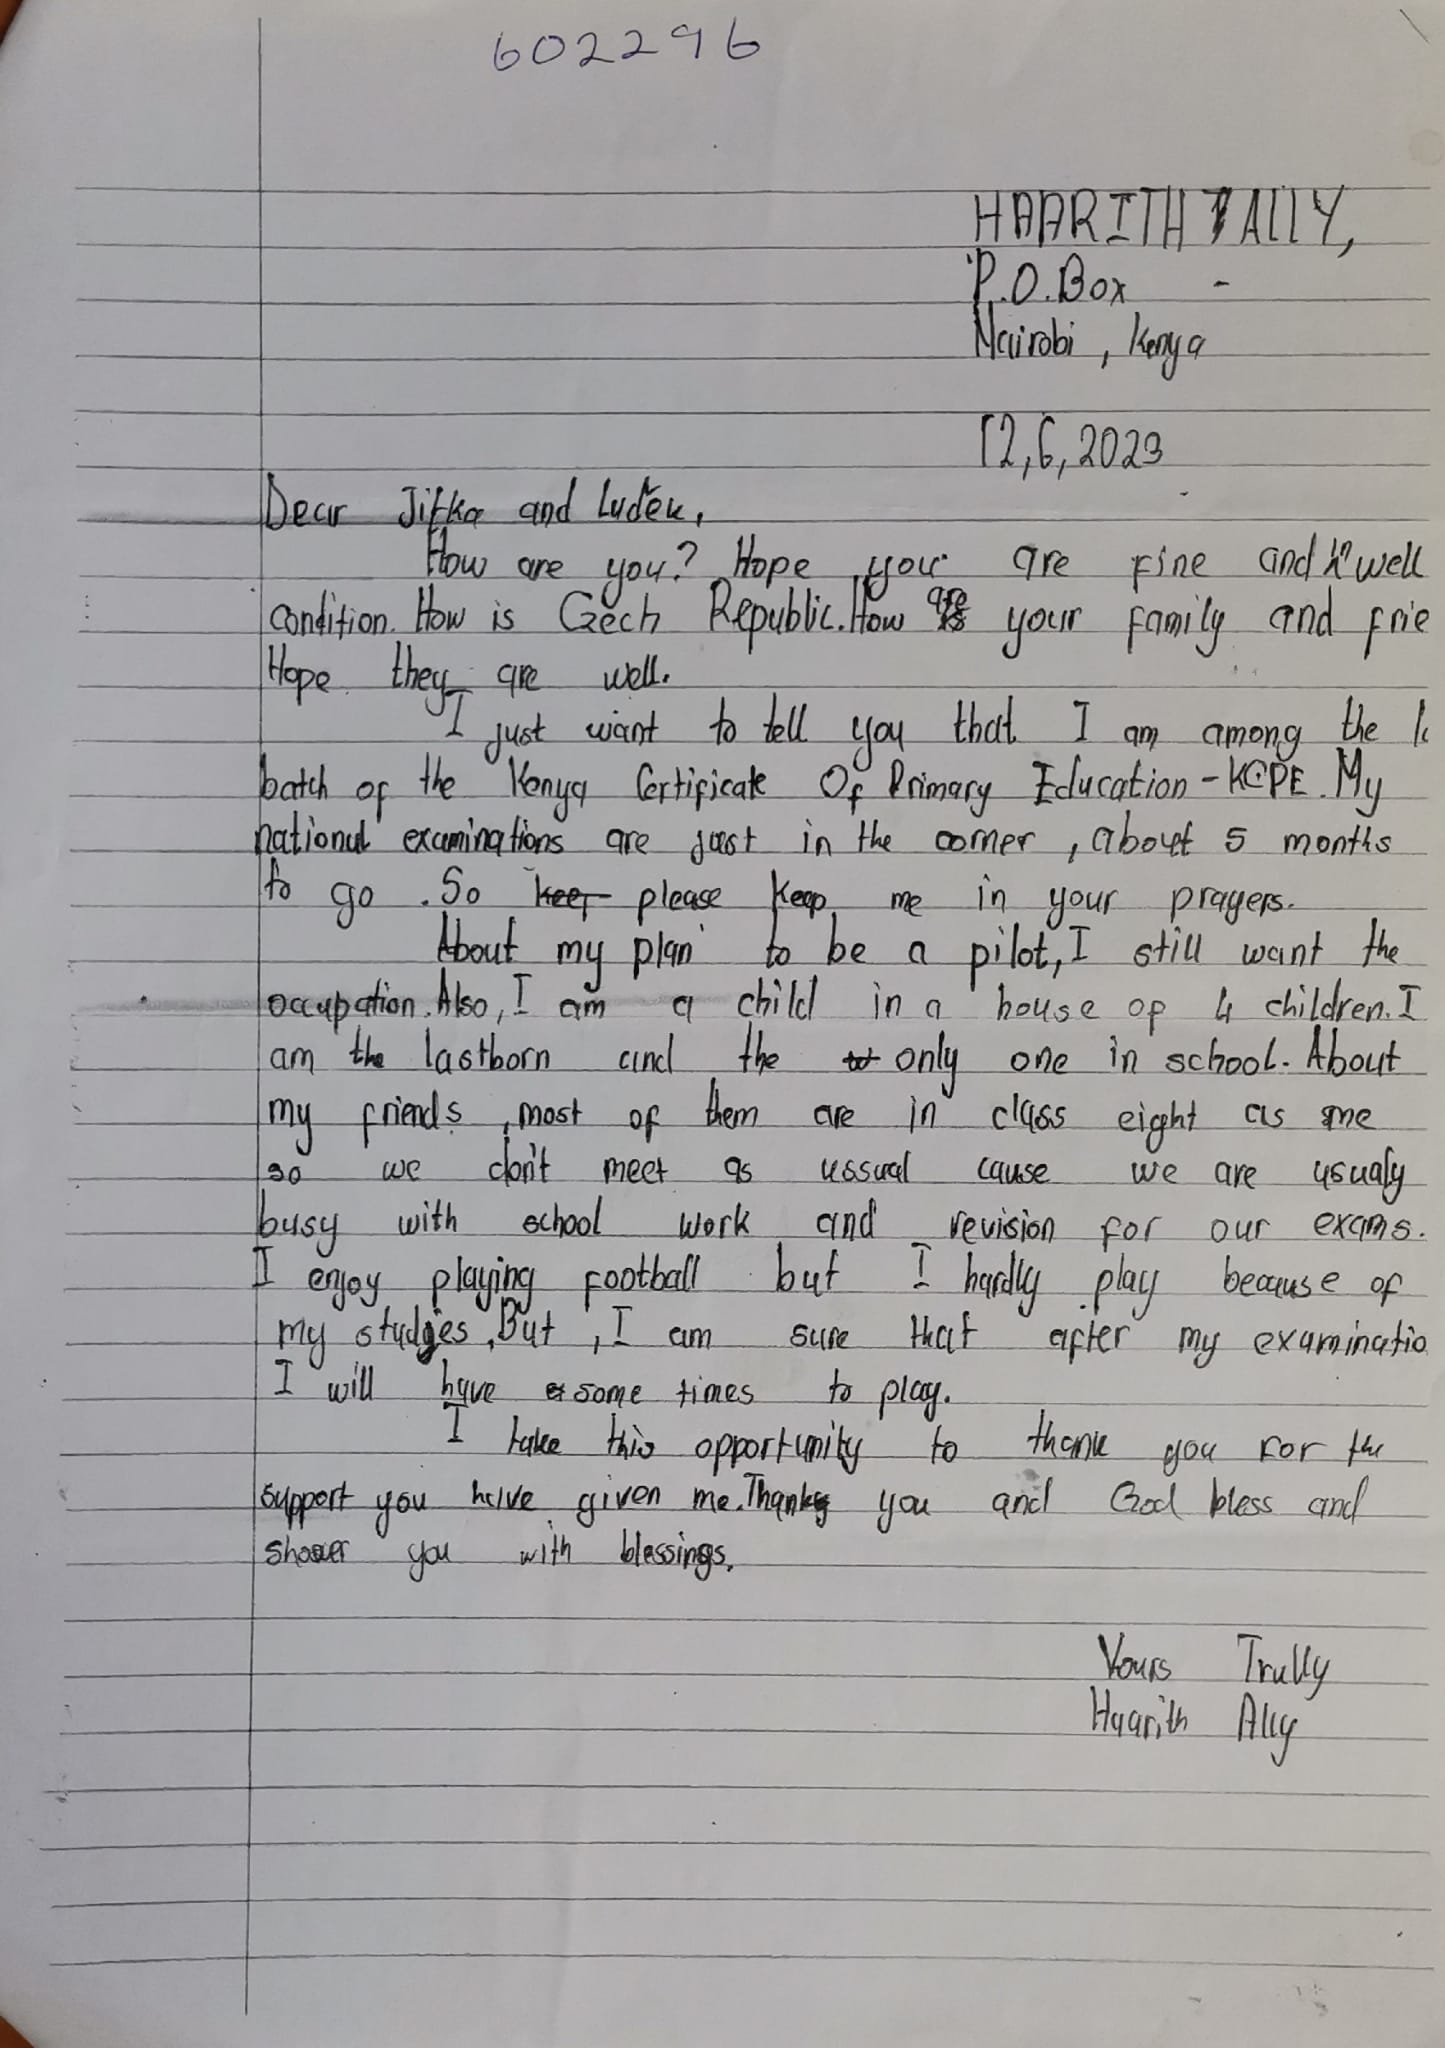 602296
HAARITH ALLY,
P.O.Box -
Nairobi, Kenya
12,6,2023
Dear Jitka and Luděk,
How are you? Hope you are fine and in well
condition. How is Czech Republic. How are your family and frie
Hope they are well.
I just want to tell you that I am among the
batch of the Kenya Certificate Of Primary Education - KCPE. My
national examinations are just in the corner, about 5 months
to go. So keep please keep me in your prayers.
About my plan to be a pilot, I still want the
occupation. Also, I am a child in a house of 4 children. I
am the lastborn and the only one in school. About
my friends, most of them are in class eight as me
so we don't meet as ussual cause we are usualy
busy with school work and revision for our exams.
I enjoy playing football but I hardly play because of
my studies. But, I am sure that after my examinatio
I will have some times to play.
I take this opportunity to thank you for the
support you have given me. Thank you and God bless and
shower you with blessings.
Yours Trully
Haarith Ally